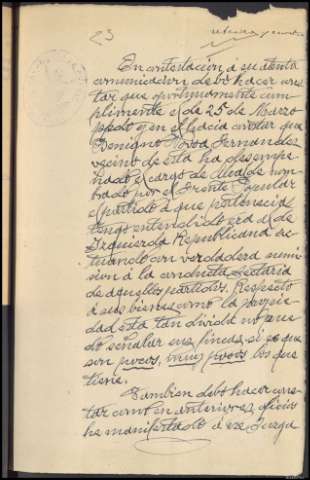 23
En contestación a su atenta
comunicación, debo hacer cons-
tar que oportunamente cum-
plimente el de 25 de Marzo
ppdo y en el hacia constar que
Benigno Novoa Fernandez
vecino de esta ha desempe-
ñado el cargo de Alcalde nom-
brado por el Frente Popular
el partido á que pertenecia
tengo entendido era el de
Izquierda Republicana ac-
tuando con verdadera sumi-
sión á la conducta sectaria
de aquellos partidos. Respecto
á sus bienes como la propie-
dad esta tan dividida no pue-
do señalar sus fincas, si es que
son pocos, muy pocos los que
tiene.
Tambien debo hacer cons-
tar como en anteriores oficios
he manifestado á ese Juzga